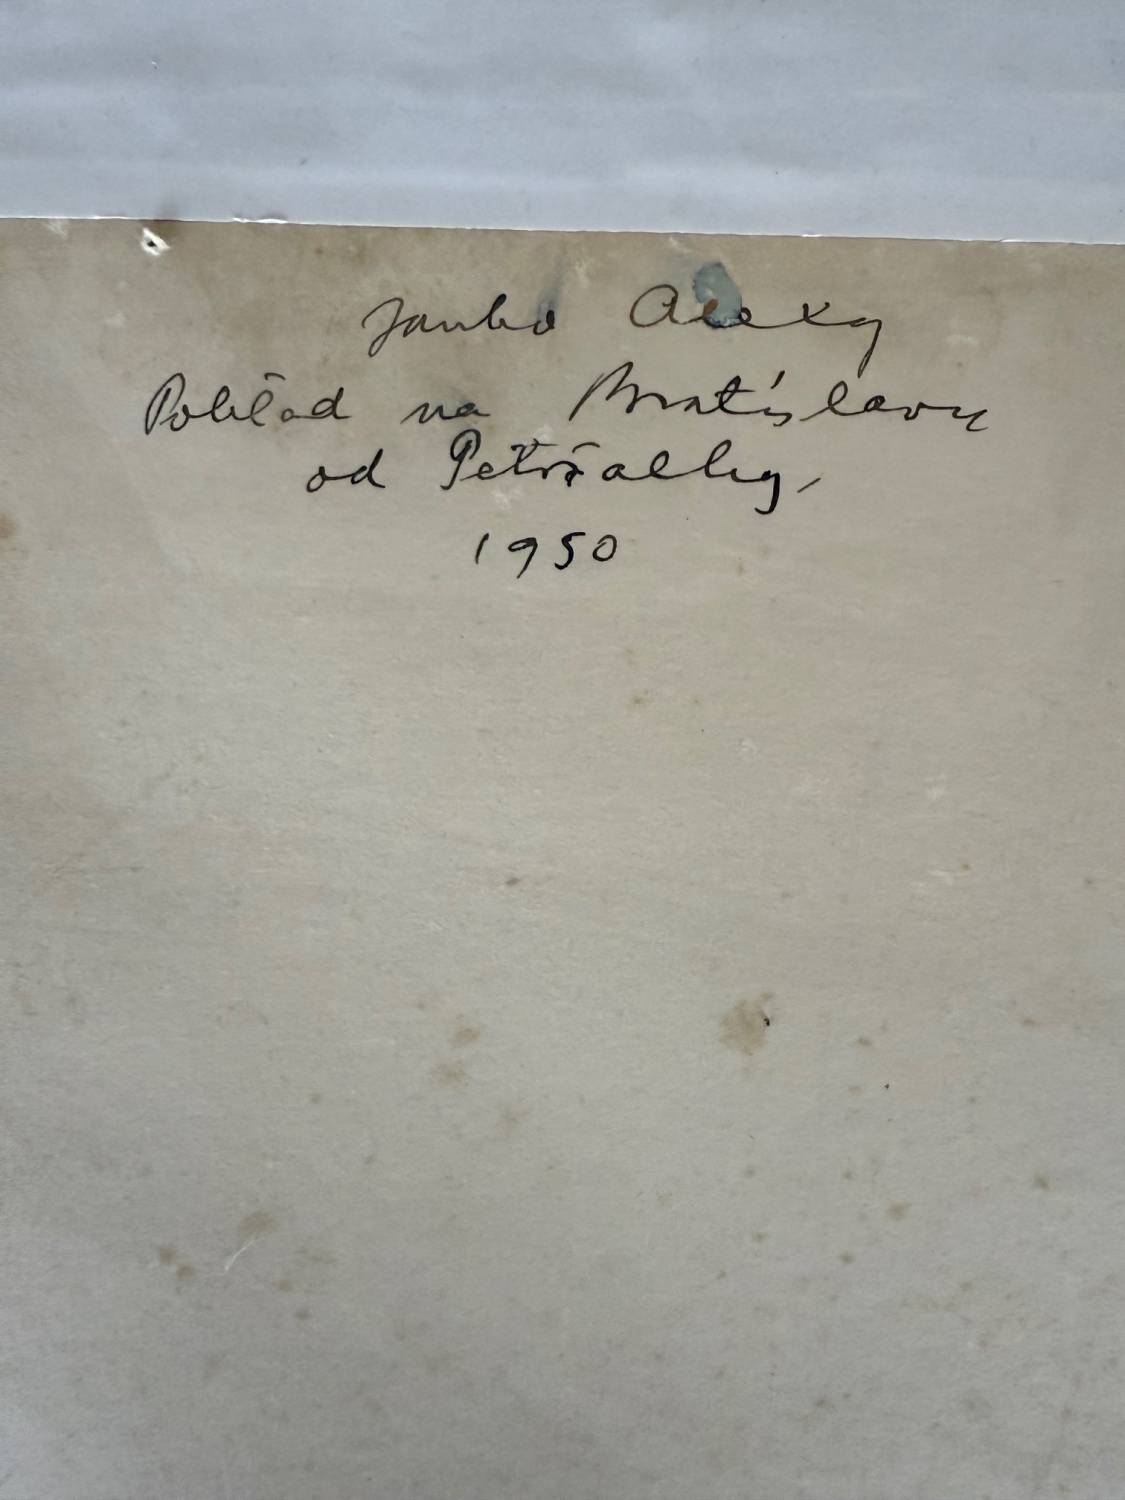 Janko Alexy
Pohľad na Bratislavu
od Petržalky,
1950